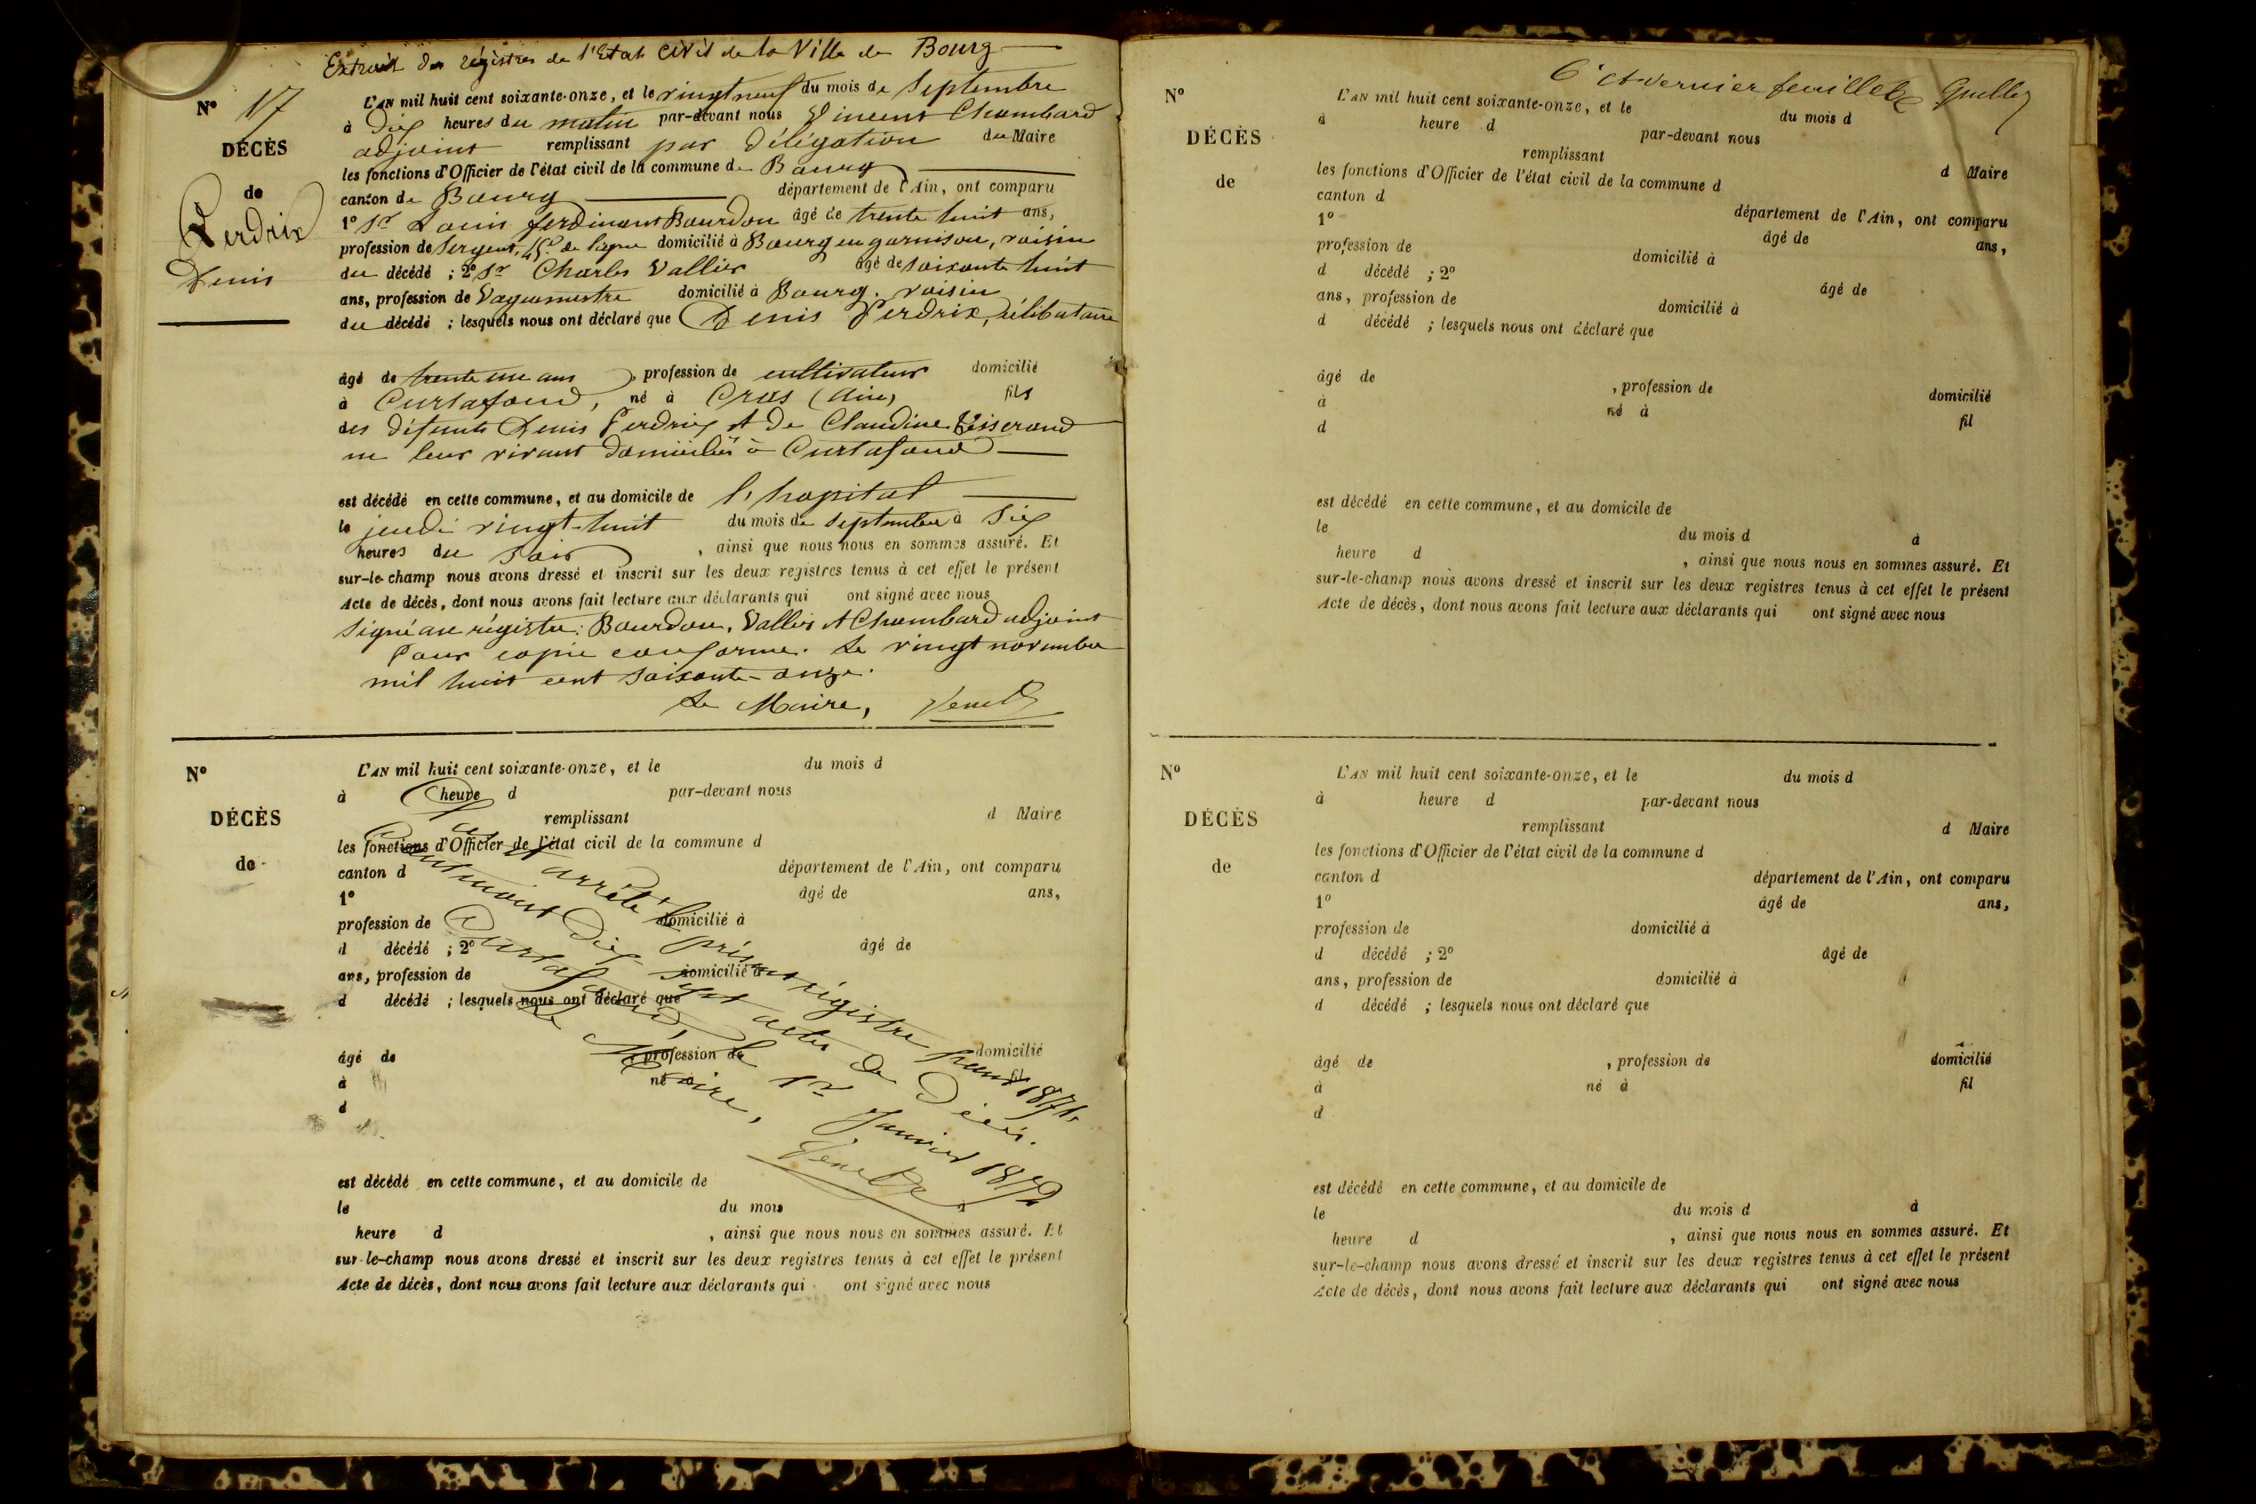 Extrait des régistres de l'Etat civil de la Ville de Bourg
N° 17
DÉCÈS
de
Perdrix
Denis
L'AN mil huit cent soixante-onze, et le vingt neuf du mois de Septembre
à dix heures du matin par-devant nous Vincent Chambard
adjoint remplissant par délégation du Maire
les fonctions d'Officier de l'état civil de la commune de Bourg
canton de Bourg département de l'Ain, ont comparu
1° Sr Louis ferdinant Bourdon âgé de trente huit ans,
profession de Sergent, 45e de ligne domicilié à Bourg en garnison, voisin
du décédé ; 2° Sr Charles Vallier âgé de soixante huit
ans, profession de Vaguemestre domicilié à Bourg. voisin
du décédé ; lesquels nous ont déclaré que Denis Perdrix, célibataire
âgé de trente un ans, profession de cultivateur domicilié
à Curtafond, né à Cras (Ain) fils
des défunts Denis Perdrix et de Claudine Tisserand
en leur vivant domiciliés à Curtafond
est décédé en cette commune, et au domicile de l'hopital
le jeudi vingt-huit du mois de septembre à Six
heures du soir, ainsi que nous nous en sommes assuré. Et
sur-le-champ nous avons dressé et inscrit sur les deux registres tenus à cet effet le présent
Acte de décès, dont nous avons fait lecture aux déclarants qui ont signé avec nous
Signé au régistre : Bourdon, Vallier et Chambard adjoint
Pour copie conforme. Le vingt novembre
mil huit cent soixante-onze.
Le Maire,
N°
DÉCÈS
de
L'AN mil huit cent soixante-onze, et le du mois d
à heure d par-devant nous
remplissant d Maire
les fonctions d'Officier de l'état civil de la commune d
canton d département de l'Ain, ont comparu
1° âgé de ans,
profession de domicilié à
d décédé ; 2° âgé de
ans, profession de domicilié à
d décédé ; lesquels nous ont déclaré que
âgé de , profession de domicilié
à né à fil
d
est décédé en cette commune, et au domicile de
le du mois d à
heure d , ainsi que nous nous en sommes assuré. Et
sur-le-champ nous avons dressé et inscrit sur les deux registres tenus à cet effet le présent
Acte de décès, dont nous avons fait lecture aux déclarants qui ont signé avec nous
Clos et arrêté le présent régistre pour 1871,
contenant Dix sept actes de Décès.
Curtafond, le 1er Janvier 1872
Le Maire,
6e et dernier feuillet
N°
DÉCÈS
de
L'AN mil huit cent soixante-onze, et le du mois d
à heure d par-devant nous
remplissant d Maire
les fonctions d'Officier de l'état civil de la commune d
canton d département de l'Ain, ont comparu
1° âgé de ans,
profession de domicilié à
d décédé ; 2° âgé de
ans, profession de domicilié à
d décédé ; lesquels nous ont déclaré que
âgé de , profession de domicilié
à né à fil
d
est décédé en cette commune, et au domicile de
le du mois d à
heure d , ainsi que nous nous en sommes assuré. Et
sur-le-champ nous avons dressé et inscrit sur les deux registres tenus à cet effet le présent
Acte de décès, dont nous avons fait lecture aux déclarants qui ont signé avec nous
N°
DÉCÈS
de
L'AN mil huit cent soixante-onze, et le du mois d
à heure d par-devant nous
remplissant d Maire
les fonctions d'Officier de l'état civil de la commune d
canton d département de l'Ain, ont comparu
1° âgé de ans,
profession de domicilié à
d décédé ; 2° âgé de
ans, profession de domicilié à
d décédé ; lesquels nous ont déclaré que
âgé de , profession de domicilié
à né à fil
d
est décédé en cette commune, et au domicile de
le du mois d à
heure d , ainsi que nous nous en sommes assuré. Et
sur-le-champ nous avons dressé et inscrit sur les deux registres tenus à cet effet le présent
Acte de décès, dont nous avons fait lecture aux déclarants qui ont signé avec nous